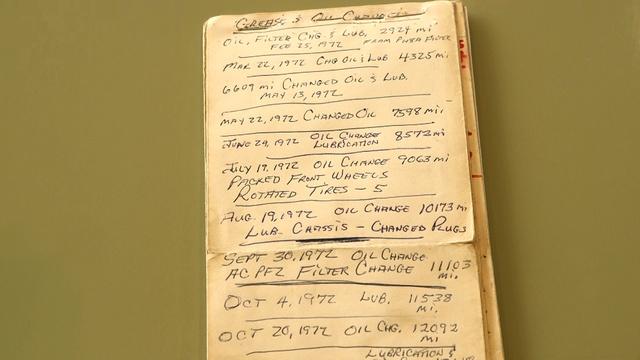 GREASE & OIL CHANGES
OIL, FILTER CHG. & LUB. 2924 mi
FEB 25, 1972 FRAM PH8A FILTER
MAR 22, 1972 CHG OIL & LUB 4325 mi
6609 mi CHANGED OIL & LUB.
MAY 13, 1972
MAY 22, 1972 CHANGED OIL 7598 mi
JUNE 29, 1972 OIL CHANGE 8573 mi
LUBRICATION
JULY 17, 1972 OIL CHANGE 9063 mi
PACKED FRONT WHEELS
ROTATED TIRES - 5
AUG. 19, 1972 OIL CHANGE 10173 mi
LUB. CHASSIS - CHANGED PLUGS
SEPT 30, 1972 OIL CHANGE
AC PF2 FILTER CHANGE 11103 mi.
OCT 4, 1972 LUB. 11538 mi.
OCT 20, 1972 OIL CHG. 12092 mi
LUBRICATION &